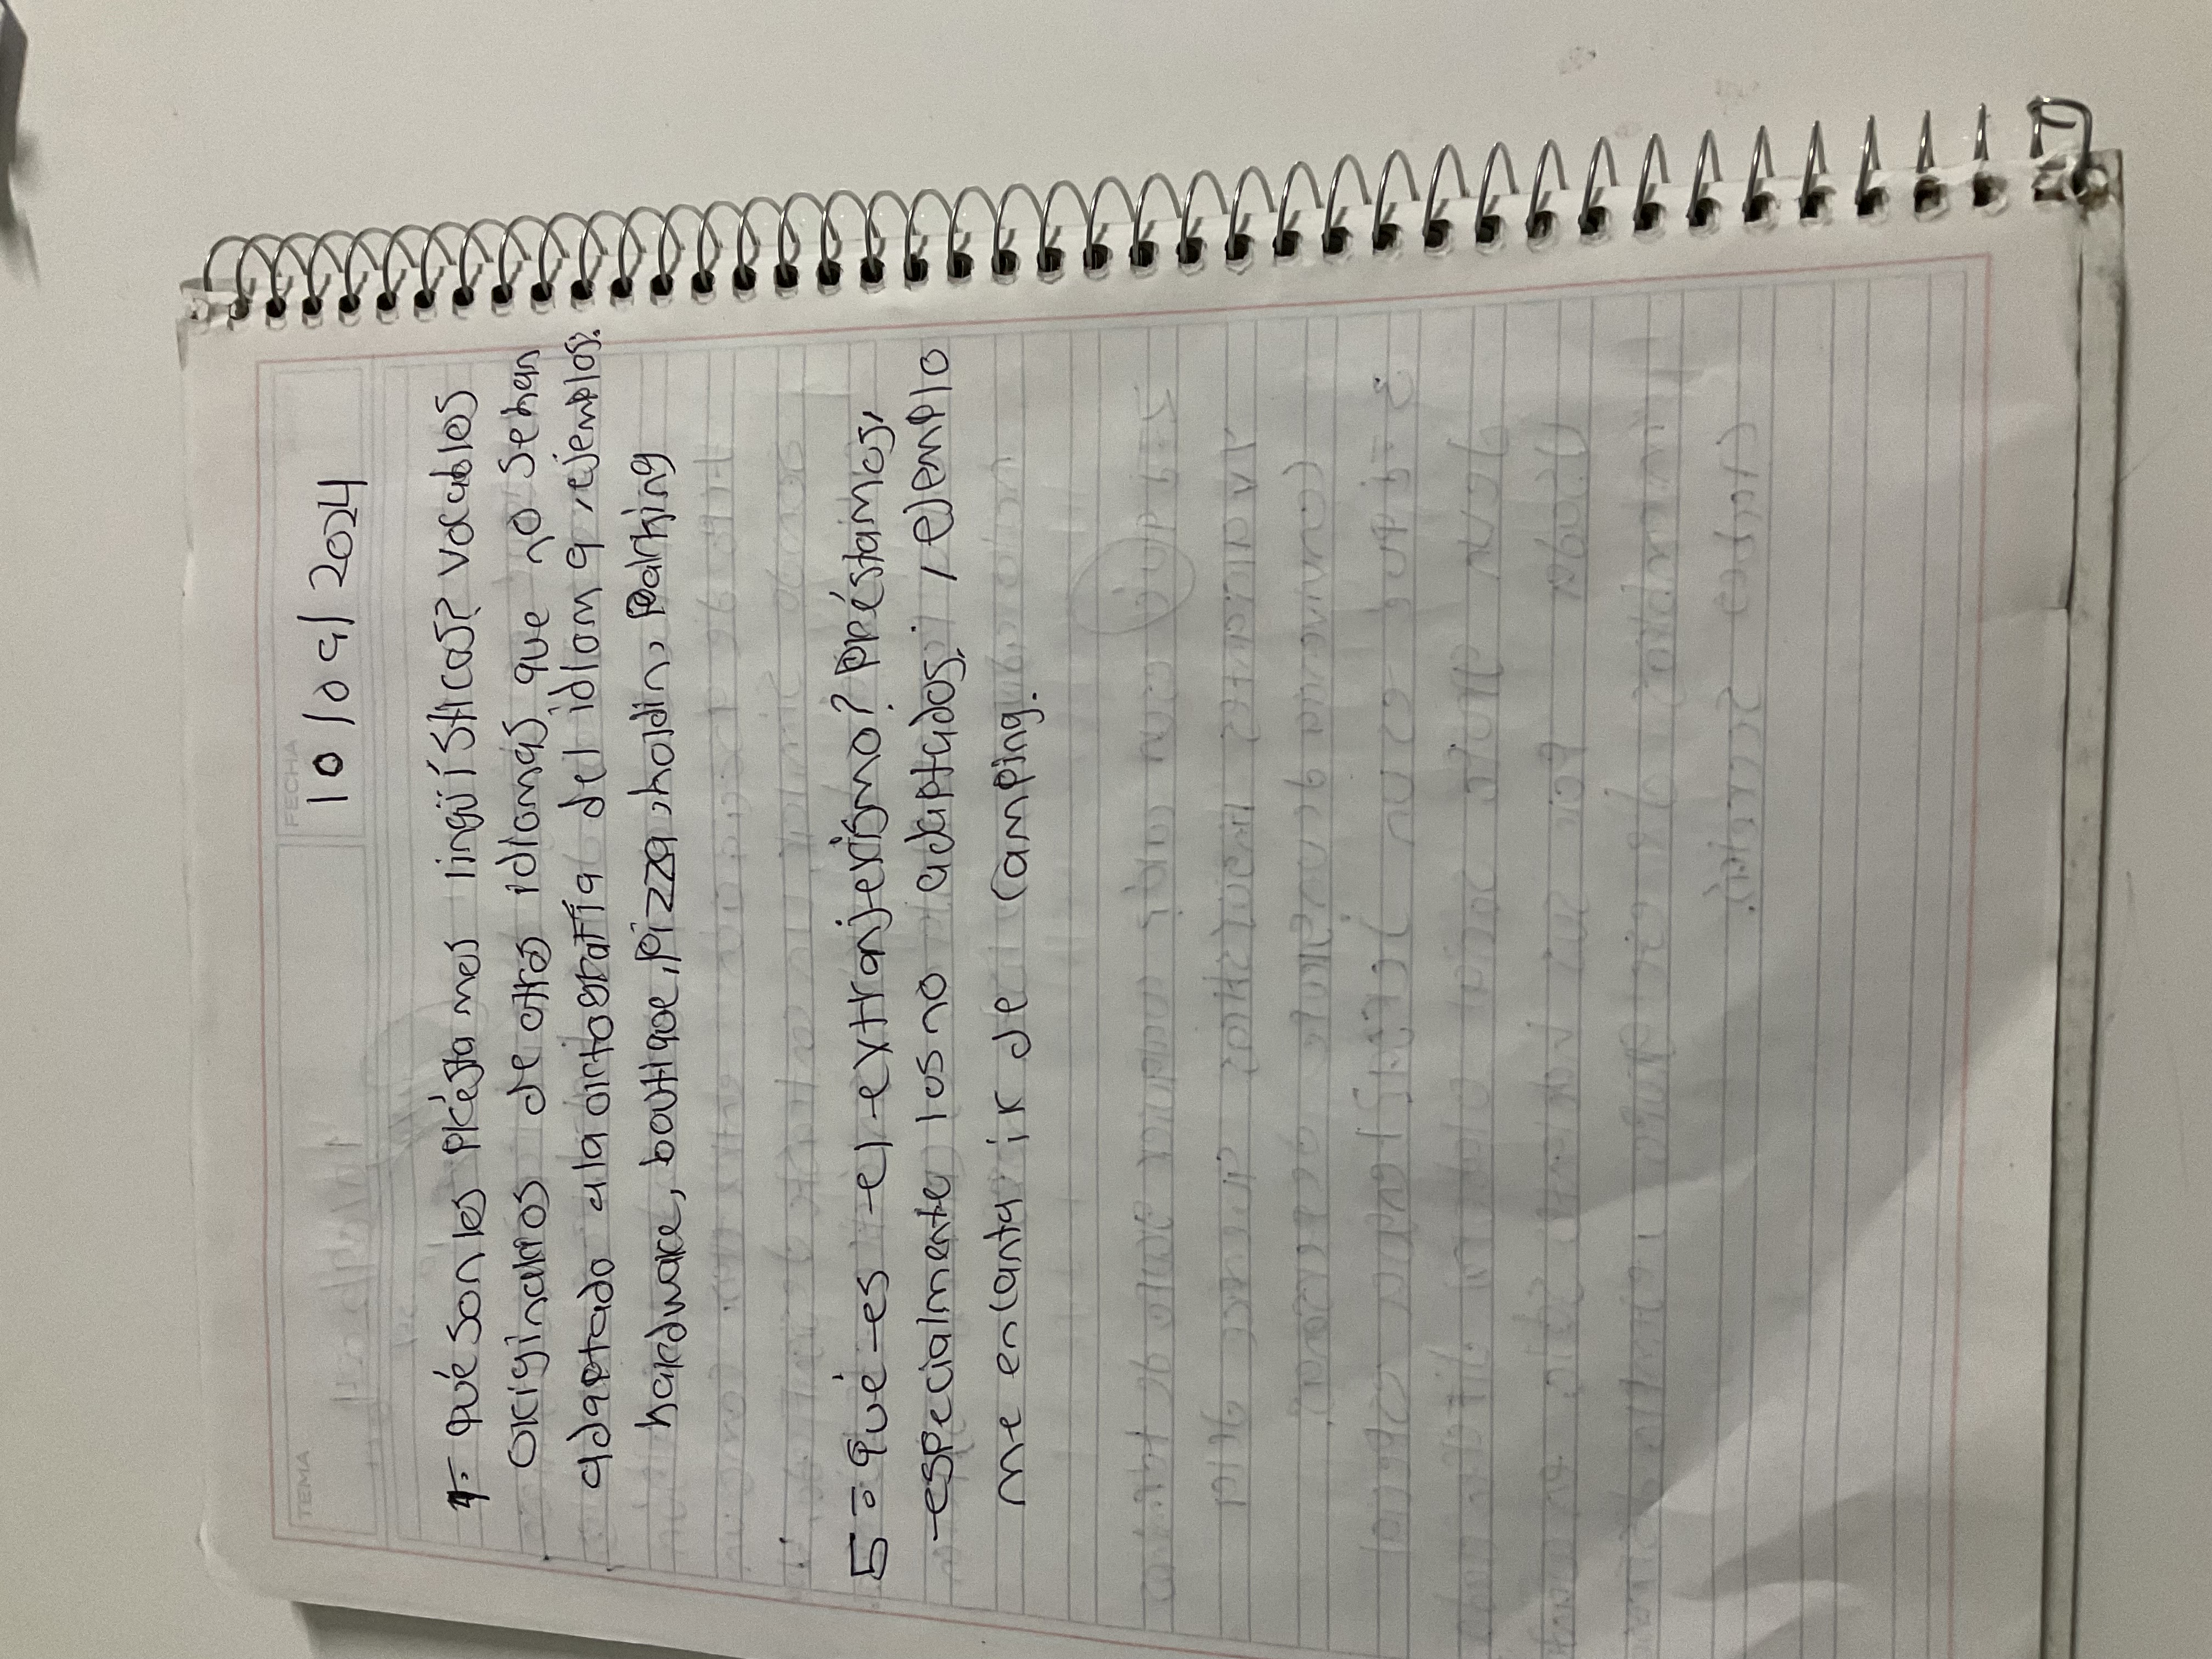 TEMA
FECHA
10/09/2024
4- qué son los préstamos lingüísticos? vocablos
originarios de otros idiomas que no se han
adaptado a la ortografía del idioma, ejemplos:
hardware, boutique, pizza, holdin, Parking
5- qué es el extranjerismo? Préstamos,
especialmente los no adaptados, ejemplo
me encanta ir de camping.